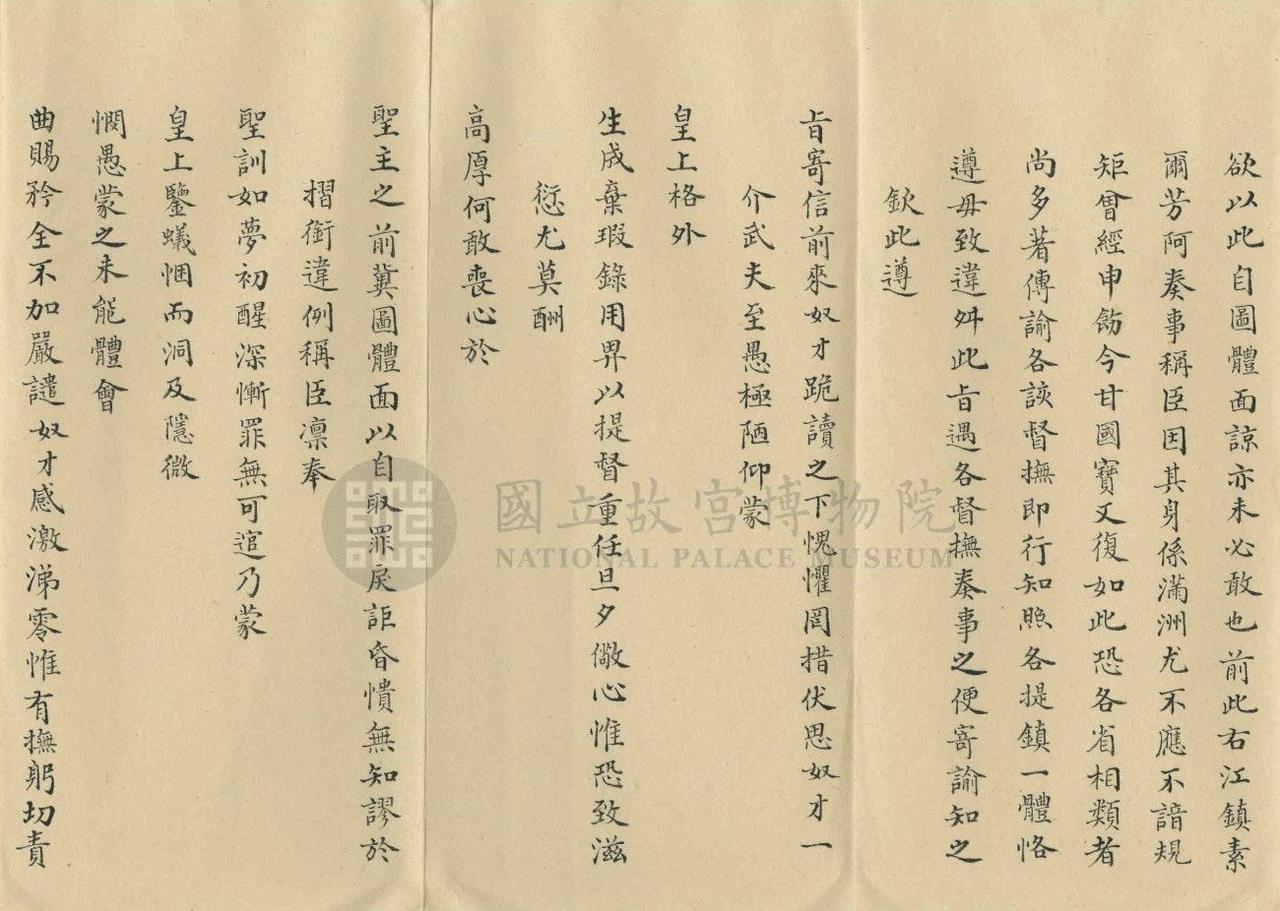 欲以此自圖體面諒亦未必敢也前此右江鎮素
爾芳阿奏事稱臣因其身係滿洲尤不應不諳規
矩曾經申飭今甘國寶又復如此恐各省相類者
尚多著傳諭各該督撫即行知照各提鎮一體恪
遵毋致違舛此旨遇各督撫奏事之便寄諭知之
欽此遵
旨寄信前來奴才跪讀之下愧懼罔措伏思奴才一
介武夫至愚極陋仰蒙
皇上格外
生成棄瑕錄用畀以提督重任旦夕儆心惟恐致滋
愆尤莫酬
高厚何敢喪心於
聖主之前冀圖體面以自取罪戾詎昏憒無知謬於
摺銜違例稱臣凜奉
聖訓如夢初醒深慚罪無可逭乃蒙
皇上鑒蟻悃而洞及隱微
憫愚蒙之未能體會
曲賜矜全不加嚴譴奴才感激涕零惟有撫躬切責
國立故宮博物院
NATIONAL PALACE MUSEUM